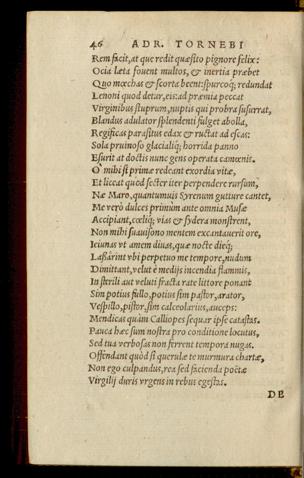 46 ADR. TORNEBI
Rem facit, at que redit quæsito pignore felix:
Ocia læta fouent multos, & inertia præbet
Quo mœchas & scorta beent: spurcoq; redundat
Lenoni quod detur, eis: ad præmia peccat
Virginibus stuprum, nuptis qui probra susurrat,
Blandus adulator splendenti fulget abolla,
Regificas parasitus edax & ructat ad escas:
Sola pruinoso glacialiq; horrida panno
Esurit at doctis nunc gens operata camœnis.
O mihi si primæ redeant exordia vitæ,
Et liceat quod fecter iter perpendere rursum,
Næ Maro, quantumuis Syrenum gutture cantet,
Me verò dulces primùm ante omnia Musæ
Accipiant, cœliq; vias & sydera monstrent,
Non mihi suauisono mentem excantauerit ore,
Ieiunas vt amem diuas, quæ nocte dieq;
Lassarint vbi perpetuo me tempore, nudum
Dimittant, velut è medijs incendia flammis,
In sterili aut veluti fracta rate littore ponant
Sim potius fullo, potius sim pastor, arator,
Vespillo, pistor, sim calceolarius, auceps:
Mendicas quàm Calliopes sequar ipse catastas.
Pauca hæc sum nostra pro conditione locutus,
Sed tua verbosas non ferrent tempora nugas.
Offendant quòd si querulæ te murmura chartæ,
Non ego culpandus, rea sed facienda poëtæ
Virgilij duris vrgens in rebus egestas.
DE